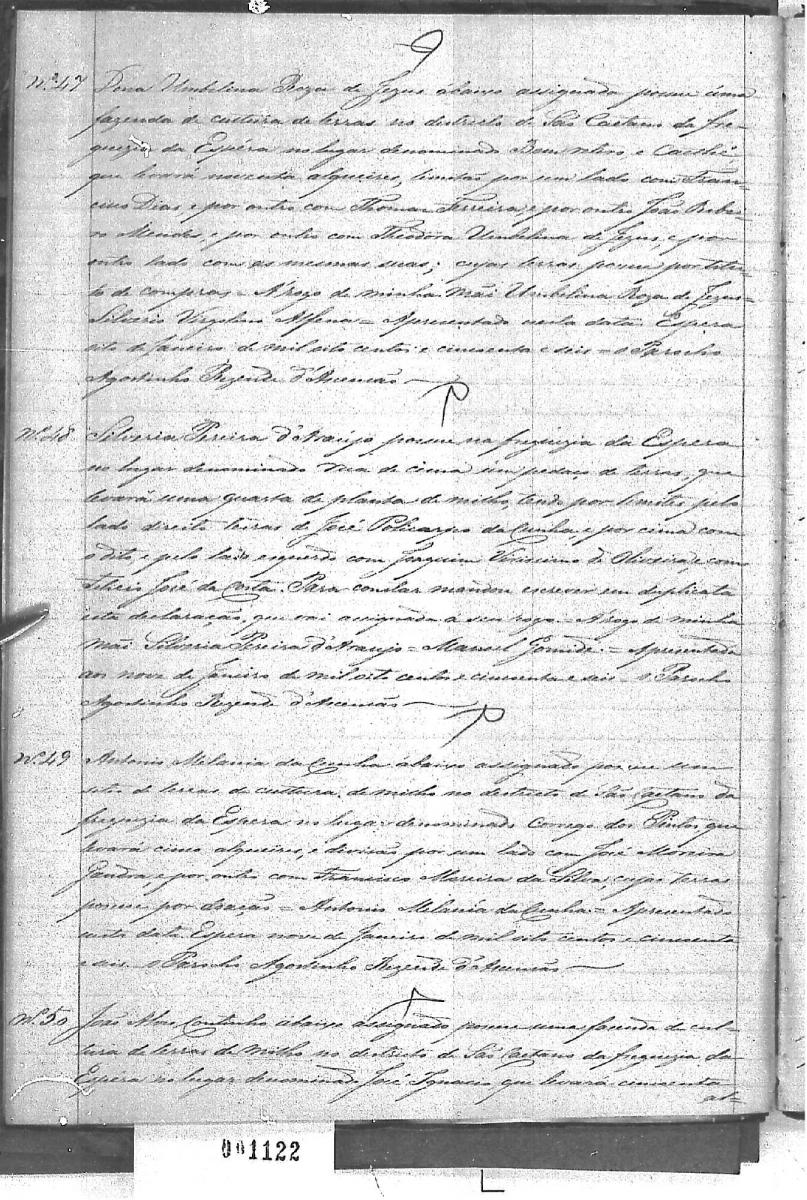 9
Nº 47 Dona Umbelina Roza de Jezus abaixo assignada possue uma
fazenda de cultura de terras no destricto de São Caetano da fre-
guezia da Espera no lugar denominado Bom retiro, e Caethé
que levará noventa alqueires, limitão por um lado com Fran-
cisco Dias, e por outro com Thomas Ferreira, e por outro João Ribei-
ro Mendes, e por outro com Theodora Umbelina de Jezus, e por
outro lado com as mesmas suas; cujas terras possue por titu-
lo de compras = A rogo de minha Mãi Umbelina Roza de Jezus =
Silverio Virgolino Alfena = Apresentado nesta data. Espera
oito de Janeiro de mil oito centos e cincoenta e seis = o Parocho
Agostinho Rezende d'Ascensão
Nº 48 Silveria Pereira d'Araujo possue na freguezia da Espera
no lugar denominado rua de cima um pedaço de terras, que
levará uma quarta de planta de milho, tendo por limites pelo
lado direito terras de José Policarpo da Cunha, e por cima com
o dito, e pelo lado esquerdo com Joaquim de Oliveira, e com
José da Costa. Para constar mandou escrever em duplicata
esta declaração, que vai assignada a seu rogo = A rogo de minha
Mãi Silveria Pereira d'Araujo = Manoel = Apresentada
aos nove de Janeiro de mil oito centos e cincoenta e seis = o Parocho
Agostinho Rezende d'Ascensão
Nº 49 Antonio Melania da Cunha abaixo assignado possue um
sitio de terras de cultura de milho no destricto de São Caetano da
freguezia da Espera no lugar denominado Corrego dos Pintos que
levará cinco alqueires, e divisão por um lado com José Moreira
Gandra, e por outro com Francisco Moreira da Silva, cujas terras
possue por doação = Antonio Melania da Cunha = Apresentado
nesta data Espera nove de Janeiro de mil oito centos e cincoenta
e seis o Parocho Agostinho Rezende d'Ascensão
Nº 50 João Alves Coutinho abaixo assignado possue uma fazenda de cul-
tura de terras de milho no destricto de São Caetano da freguezia da
Espera no lugar denominado José Ignacio que levará cincoenta
al=
001122